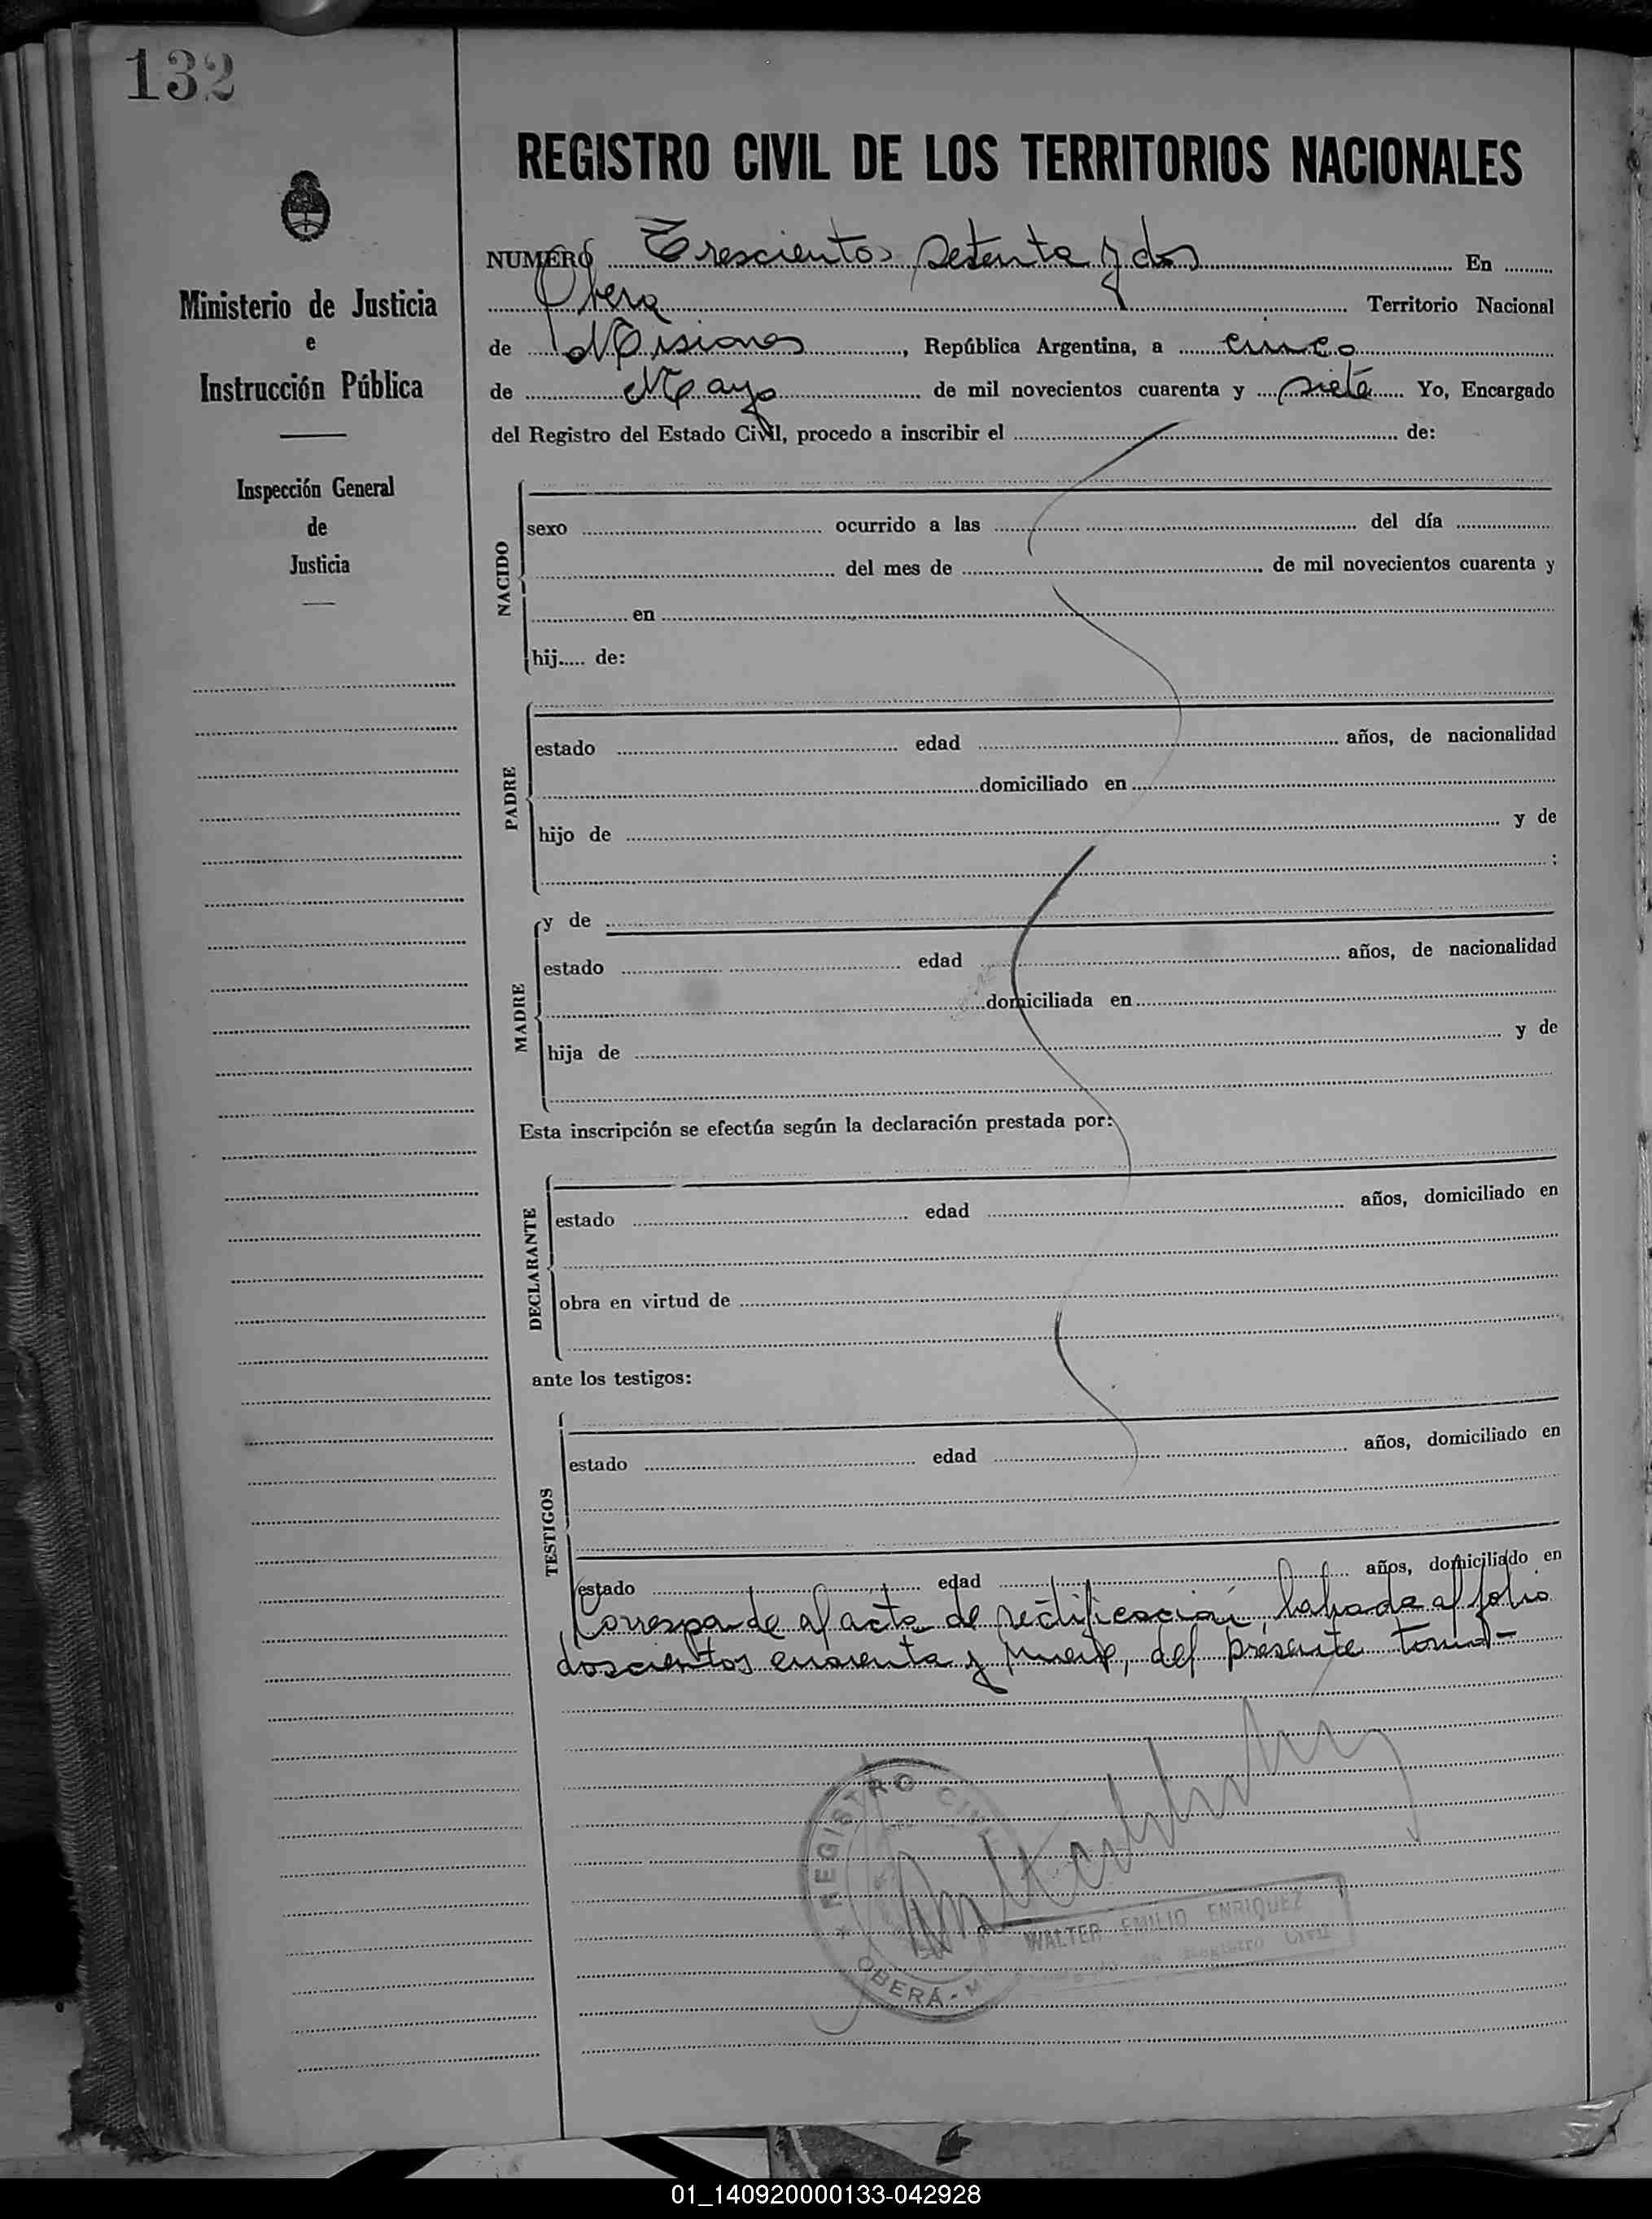 132
REGISTRO CIVIL DE LOS TERRITORIOS NACIONALES
Ministerio de Justicia
e
Instrucción Pública
Inspección General
de
Justicia
NUMERO Trescientos setenta y dos En
Obera Territorio Nacional
de Misiones, República Argentina, a cinco
de Mayo de mil novecientos cuarenta y siete Yo, Encargado
del Registro del Estado Civil, procedo a inscribir el de:
NACIDO
sexo ocurrido a las del día
del mes de de mil novecientos cuarenta y
en
hij..... de:
PADRE
estado edad años, de nacionalidad
domiciliado en
hijo de y de
:
MADRE
y de
estado edad años, de nacionalidad
domiciliada en
hija de y de
Esta inscripción se efectúa según la declaración prestada por:
DECLARANTE
estado edad años, domiciliado en
obra en virtud de
ante los testigos:
TESTIGOS
estado edad años, domiciliado en
estado edad años, domiciliado en
Corresponde al acta de rectificación labrada al folio
doscientos cuarenta y nueve, del presente tomo-
REGISTRO CIVIL
OBERÁ - M
WALTER EMILIO ENRIQUEZ
Registro Civil
01_140920000133-042928